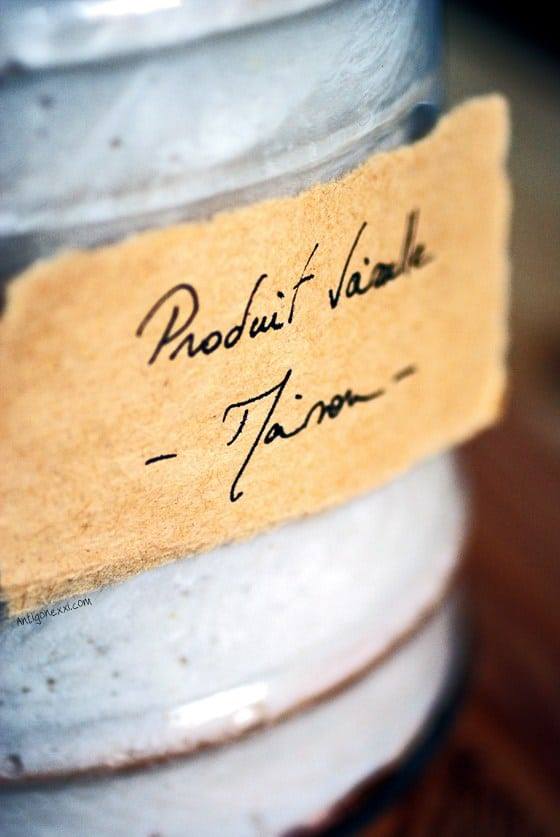 Produit Vaisselle
- Maison -
Antigonexxi.com